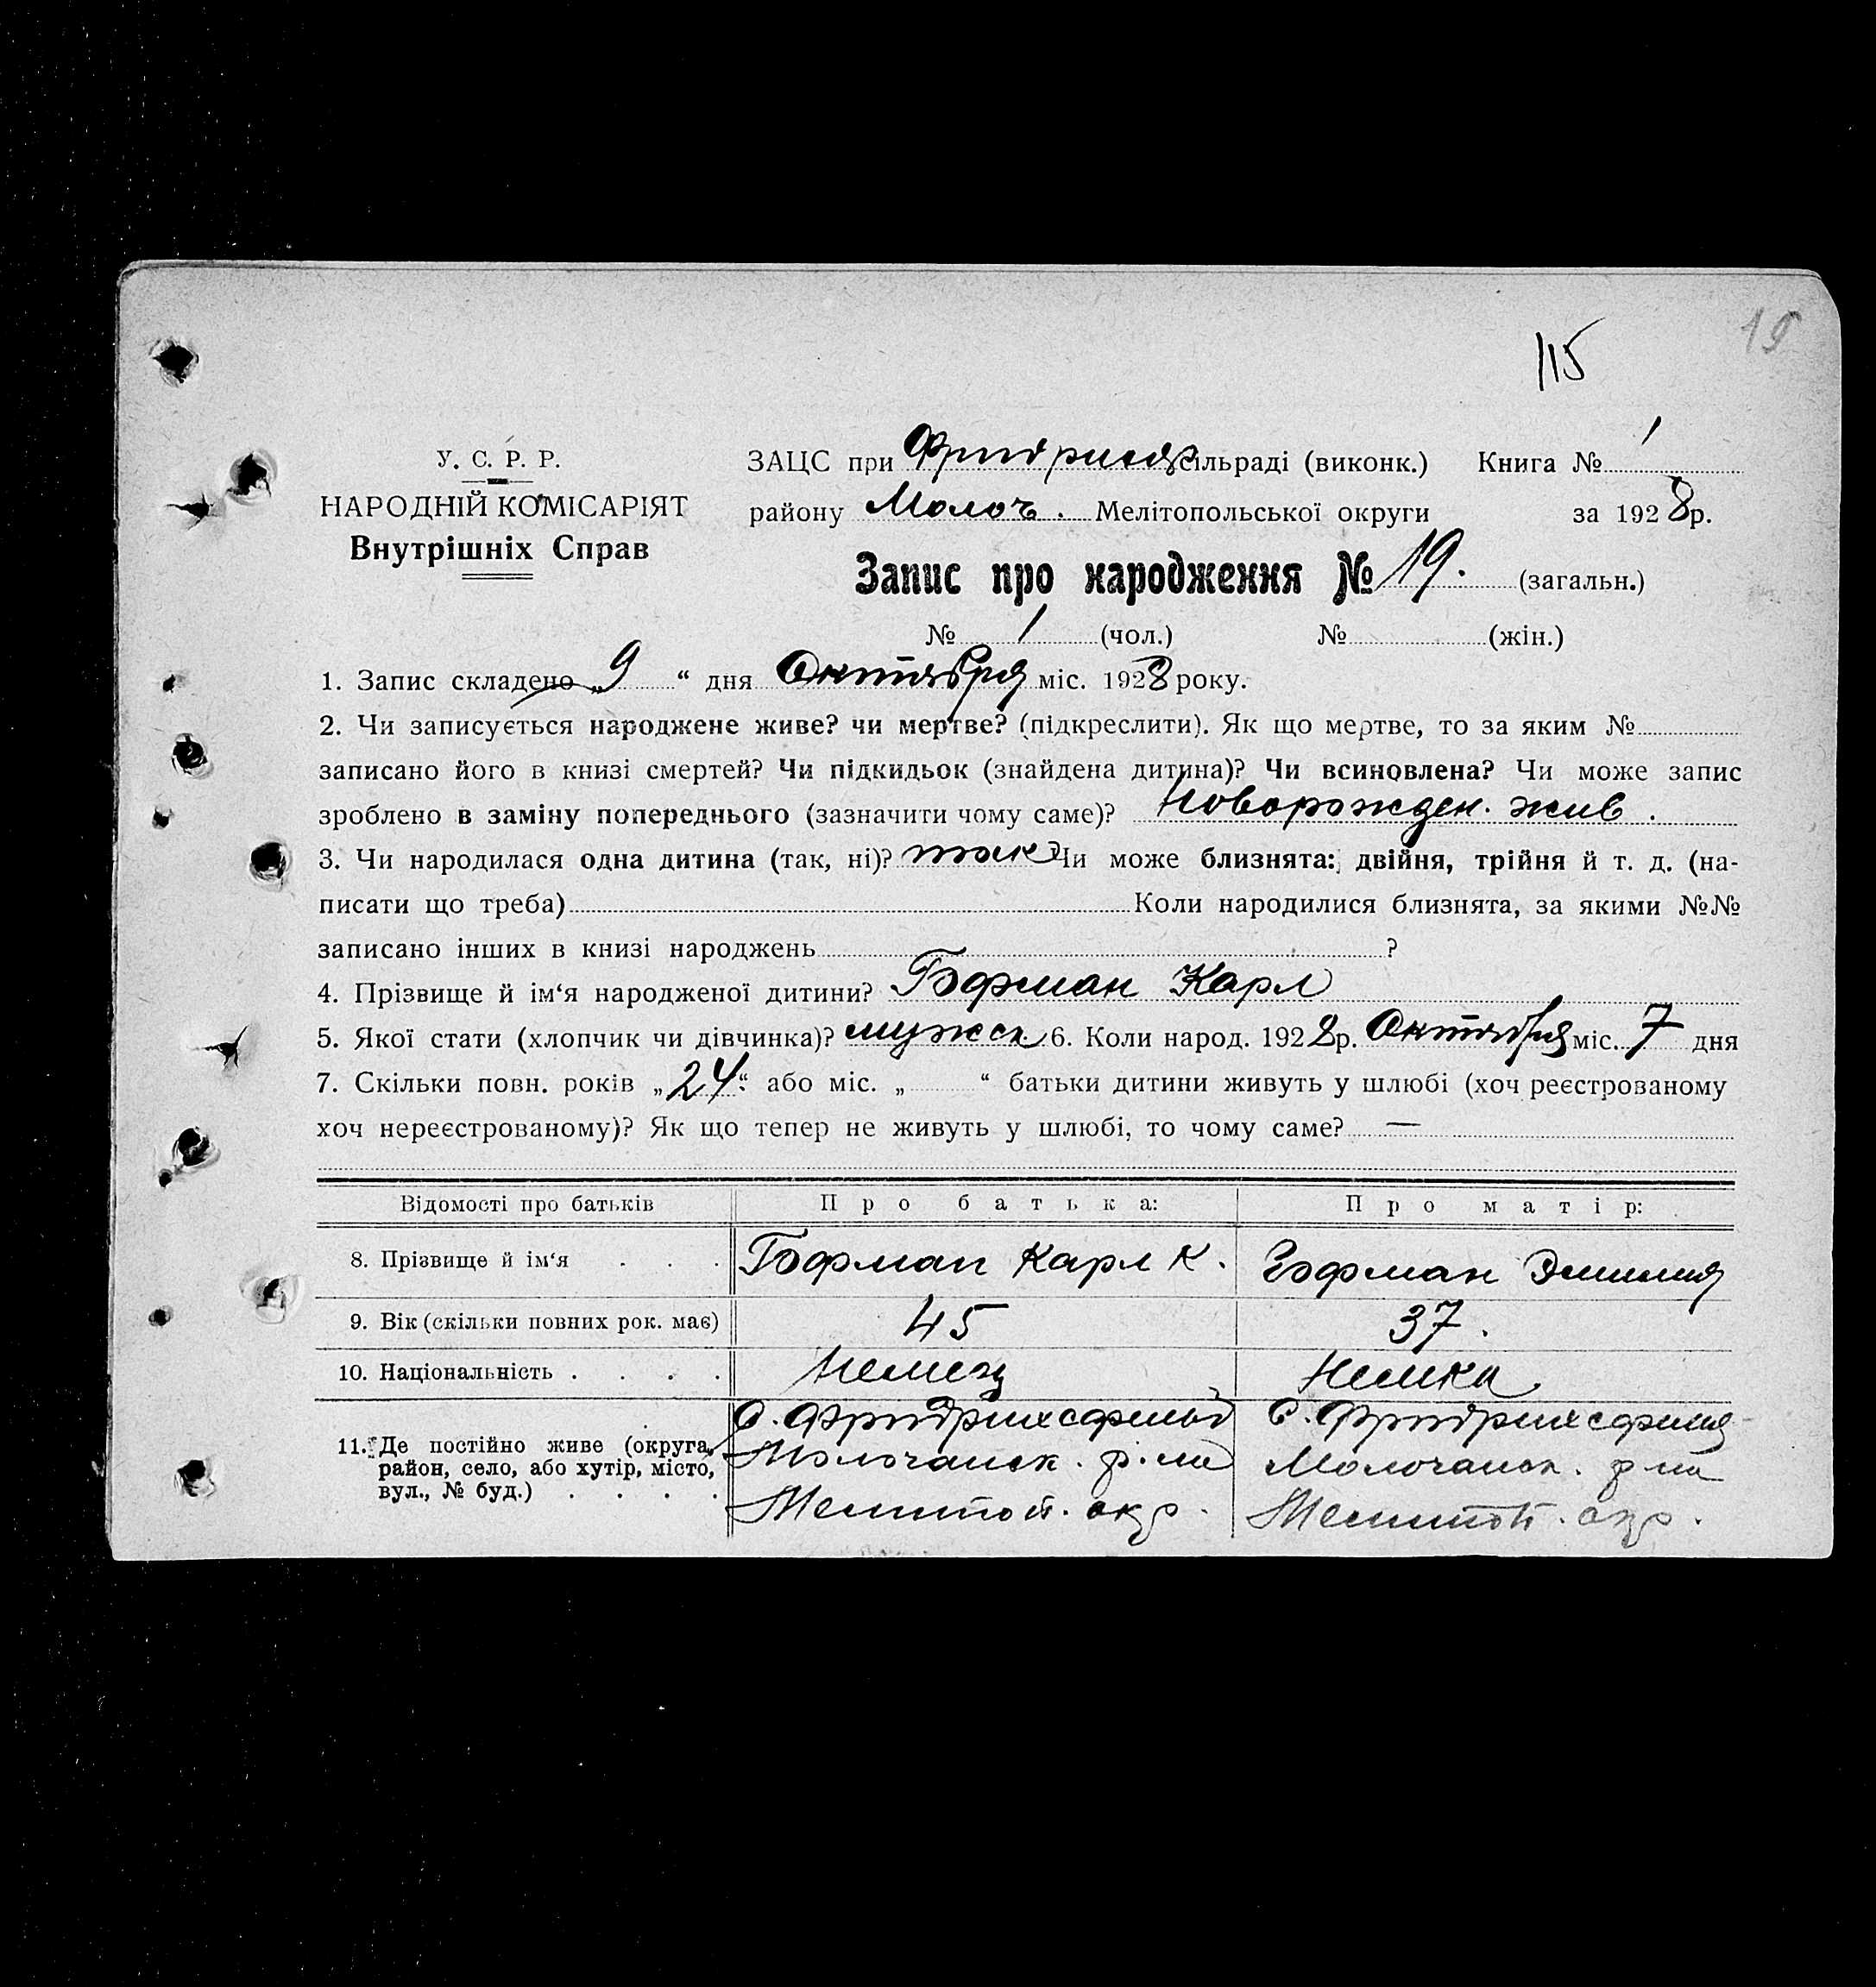 19
115
У. С. Р. Р.
НАРОДНІЙ КОМІСАРІЯТ
Внутрішніх Справ
ЗАЦС при сільраді (виконк.) Книга № 1
району Молоч. Мелітопольської округи за 1928 р.
Запис про народження № 19. (загальн.)
№ 1 (чол.) № (жін.)
1. Запис складено „9“ дня Октября міс. 1928 року.
2. Чи записується народжене живе? чи мертве? (підкреслити). Як що мертве, то за яким №
записано його в книзі смертей? Чи підкидьок (знайдена дитина)? Чи всиновлена? Чи може запис
зроблено в заміну попереднього (зазначити чому саме)? Новорожден. жив.
3. Чи народилася одна дитина (так, ні)? так Чи може близнята: двійня, трійня й т. д. (на-
писати що треба) Коли народилися близнята, за якими №№
записано інших в книзі народжень ?
4. Прізвище й ім‘я народженої дитини? Гофман Карл
5. Якої стати (хлопчик чи дівчинка)? мужск. 6. Коли народ. 1928 р. Октября міс. 7 дня
7. Скільки повн. років „24“ або міс. „ “ батьки дитини живуть у шлюбі (хоч реєстрованому
хоч нереєстрованому)? Як що тепер не живуть у шлюбі, то чому саме? —
Відомості про батьків Про батька: Про матір:
8. Прізвище й ім‘я . . . Гофман Карл К. Гофман Эмилия
9. Вік (скільки повних рок. має) 45 37.
10. Національність . . . . Немец Немка
11. Де постійно живе (округа, район, село, або хутір, місто, вул., № буд.) . . . .
С. Фридрихсфельд
Молочанск. р-на
Мелитоп. окр.
С. Фридрихсфельд
Молочанск. р-на
Мелитоп. окр.